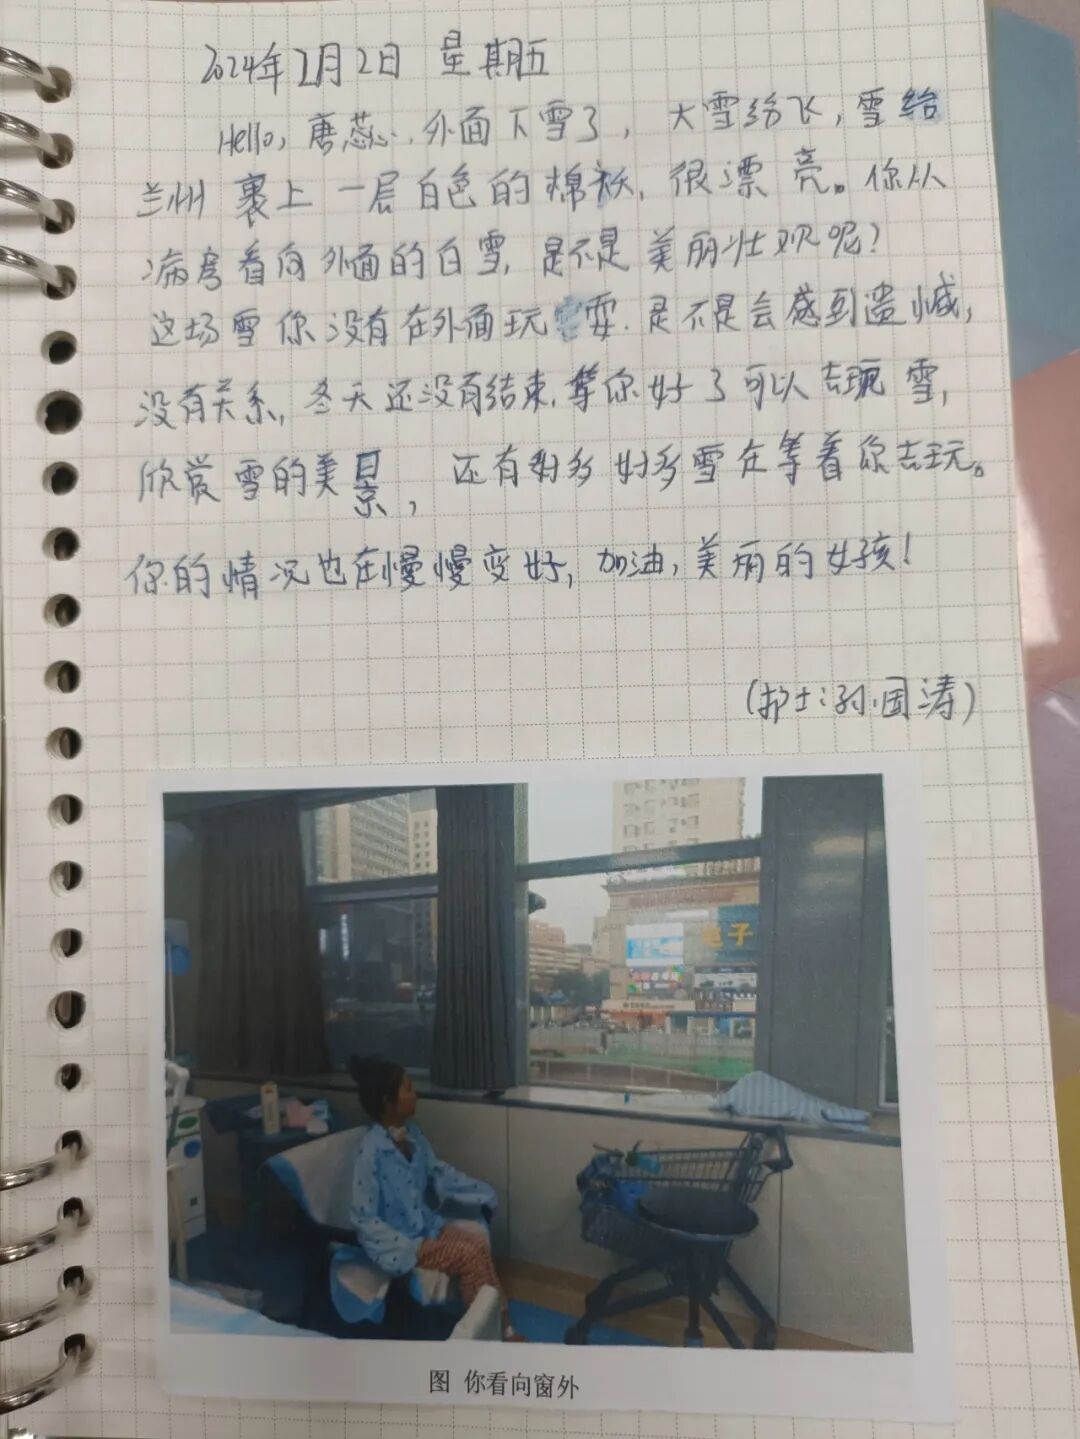 2024年2月2日 星期五
Hello, 唐蕊, 外面下雪了, 大雪纷飞, 雪给
兰州 裹上一层白色的棉袄, 很漂亮。你从
病房看向外面的白雪, 是不是美丽壮观呢?
这场雪你没有在外面玩耍. 是不是会感到遗憾,
没有关系, 冬天还没有结束, 等你好了可以去玩雪,
欣赏雪的美景, 还有好多好多雪在等着你去玩。
你的情况也在慢慢变好, 加油, 美丽的女孩!
(护士:孙国涛)
电子
图 你看向窗外